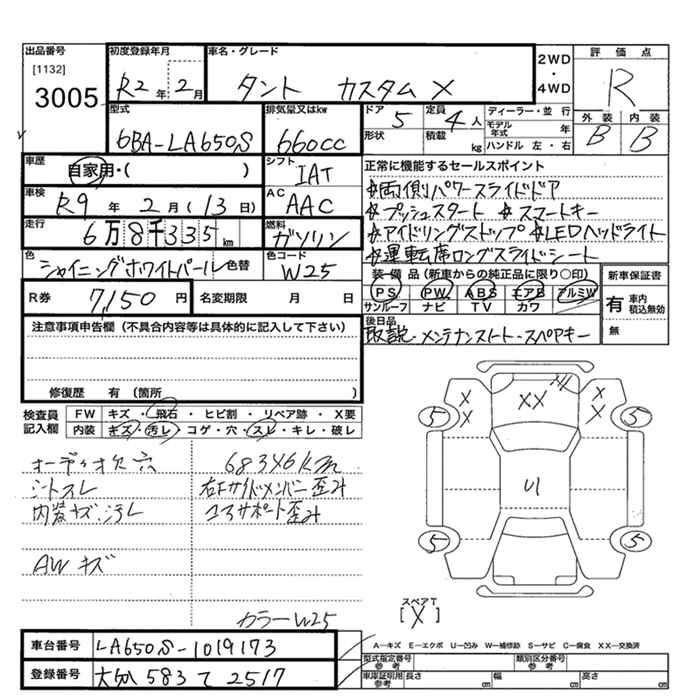 出品番号
[1132]
3005
初度登録年月
R2年2月
車名・グレード
タント カスタム X
2WD
・
4WD
評価点
R
外装 内装
B B
型式
6BA-LA650S
排気量又はkw
660cc
ドア
5
形状
定員
4人
積載 kg
ディーラー・並行
モデル年式 年
ハンドル 左・右
車歴
自家用・( )
シフト
IAT
車検
R9年2月(13日)
AC
AAC
走行
6万8千335km
燃料
ガソリン
色
シャイニングホワイトパール 色替
色コード
W25
R券 7,150円
名変期限 月 日
正常に機能するセールスポイント
☆両側パワースライドドア
☆プッシュスタート ☆スマートキー
☆アイドリングストップ ☆LEDヘッドライト
☆運転席ロングスライドシート
装備品(新車からの純正品に限り○印)
PS PW ABS エアB アルミW
サンルーフ ナビ TV カワ
新車保証書
有 車内積込無効
無
後日品
取説・メンテナンスノート・スペアキー
注意事項申告欄(不具合内容等は具体的に記入して下さい)
修復歴 有(箇所 )
検査員記入欄
FW キズ・飛石・ヒビ割・リペア跡・X要
内装 キズ・汚レ・コゲ・穴・スレ・キレ・破レ
オーディオ欠 穴
シートスレ
内装キズ、汚レ
AWキズ
68346km
右Fサイドメンバー歪み
コアサポート歪み
カラーW25
XX
X
X
X
X
5
5
U1
5
5
スペアT
[X]
A-キズ E-エクボ U-凹み W-補修跡 S-サビ C-腐食 XX-交換済
車台番号 LA650S-1019173
登録番号 大分 583 て 2517
型式指定番号 参考
類別区分番号 参考
車庫証明用 参考
長さ cm 幅 cm 高さ cm